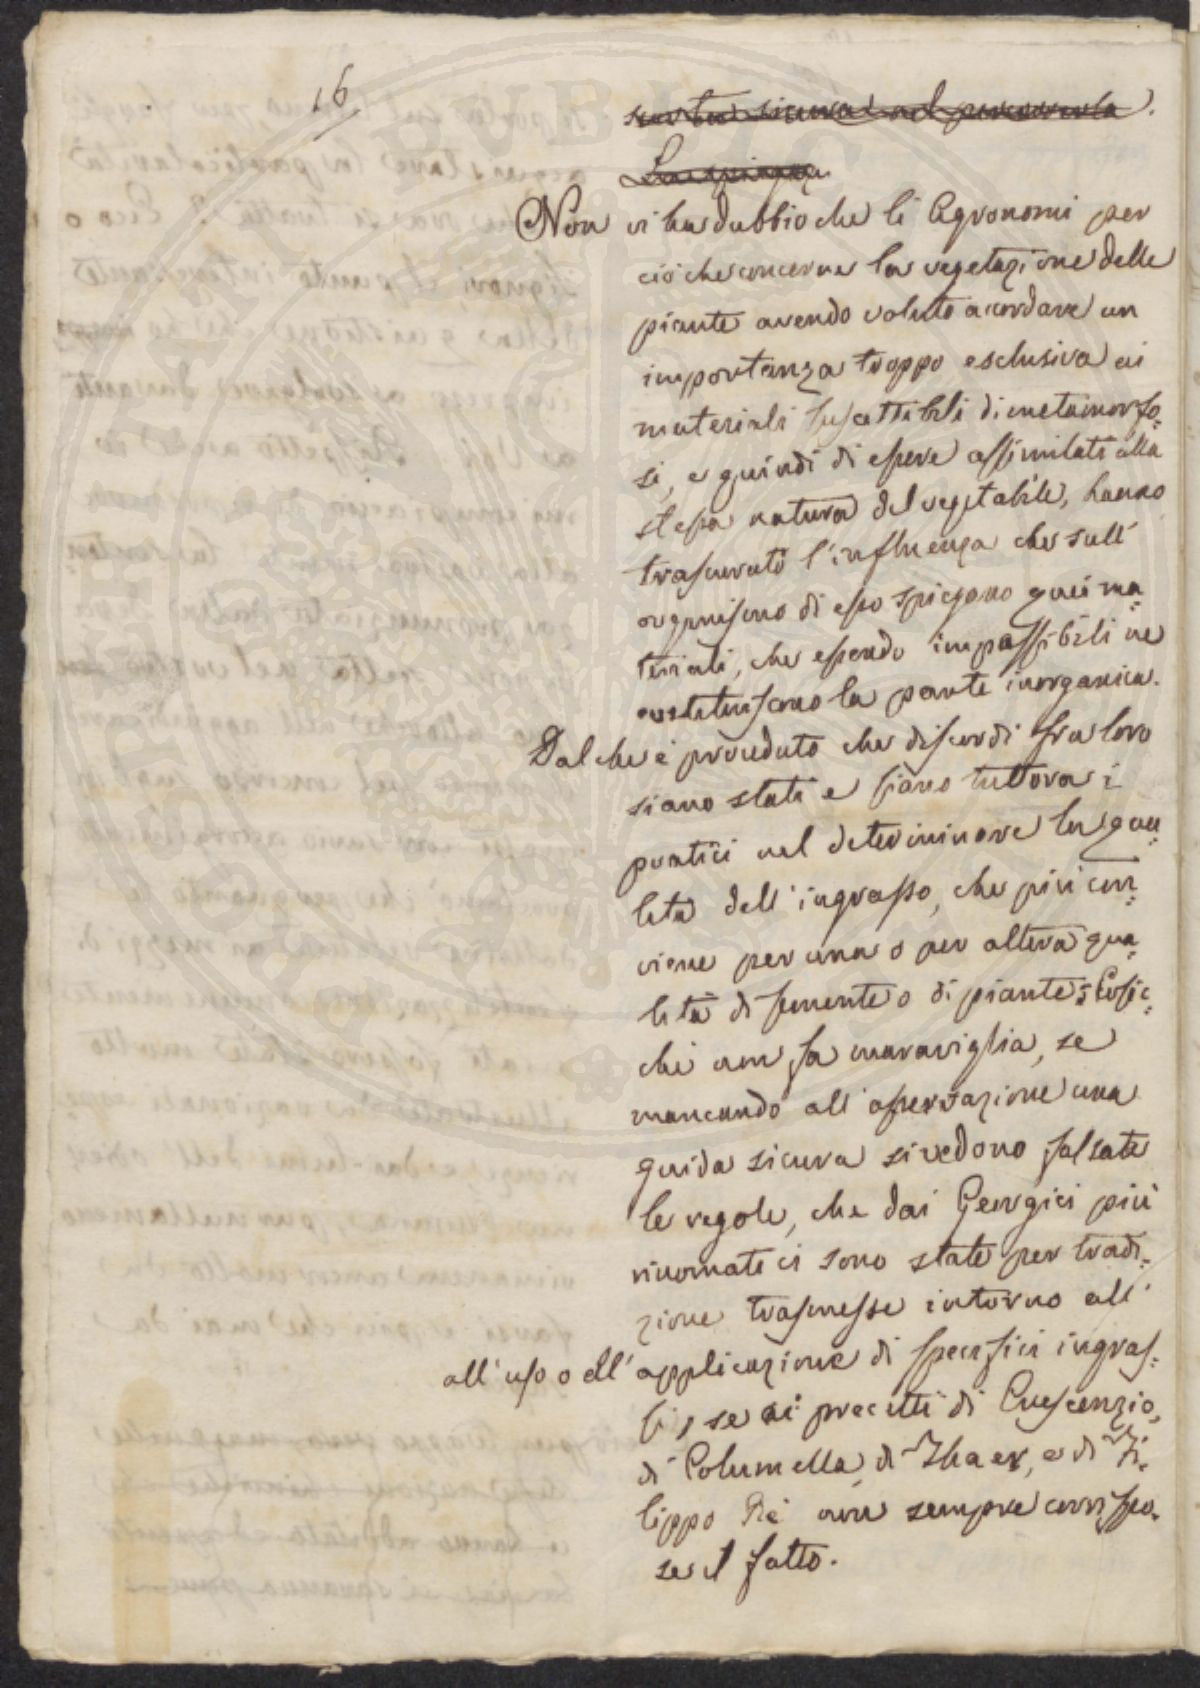 16
Non vi ha dubbio che li Agronomi per
ciò che concerne la vegetazione delle
piante avendo voluto acordare un
importanza troppo esclusiva ai
materiali suscettibili di metamorfo-
si, e quindi di essere assimilati alla
stessa natura del vegetabile, hanno
trascurato l'influenza che sull'
organismo di esso spiegano quei ma-
teriali, che essendo impassibili ne
costituiscono la parte inorganica.
Dal che è proceduto che discordi fra loro
siano stati e siano tuttora i
pratici nel determinare la qua-
lità dell'ingrasso, che più con-
viene per una o per altra qua-
lità di semente o di piante; Cosic-
chè non fa maraviglia, se
mancando all'osservazione una
guida sicura si vedono falsate
le regole, che dai Georgici più
rinomati ci sono state per tradi-
zione trasmesse intorno all'
all'uso o all'applicazione di specifici ingras-
si, se ai precetti di Crescenzio,
di Columella, di Thaer, e di Fi-
lippo Re non sempre corrispo-
se il fatto.